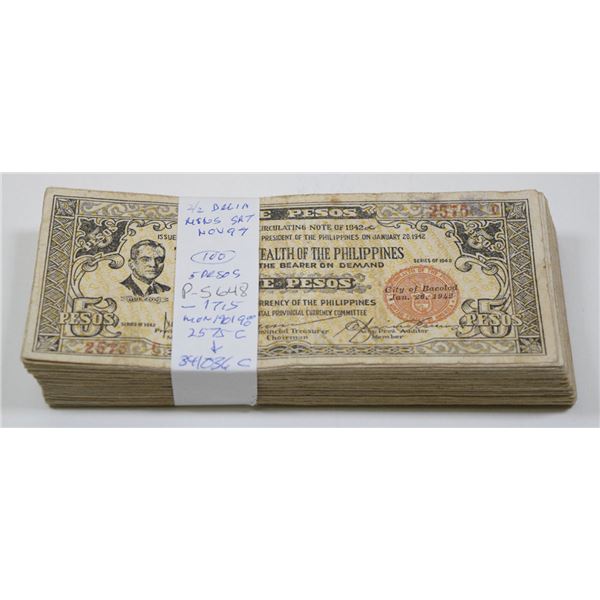 E PESOS
2575 C
ISSUE
CIRCULATING NOTE OF 1942
PRESIDENT OF THE PHILIPPINES ON JANUARY 20, 1942
WEALTH OF THE PHILIPPINES
THE BEARER ON DEMAND
SERIES OF 1942
E PESOS
City of Bacolod
Jan. 26, 1942
CURRENCY OF THE PHILIPPINES
PROVINCIAL CURRENCY COMMITTEE
5
PESOS
SERIES OF 1942
Provincial Treasurer
Chairman
Auditor
Member
5
PESOS
2575
NOV 97
100
5 PESOS
P-S648
- 1715
2575 C
341036 C